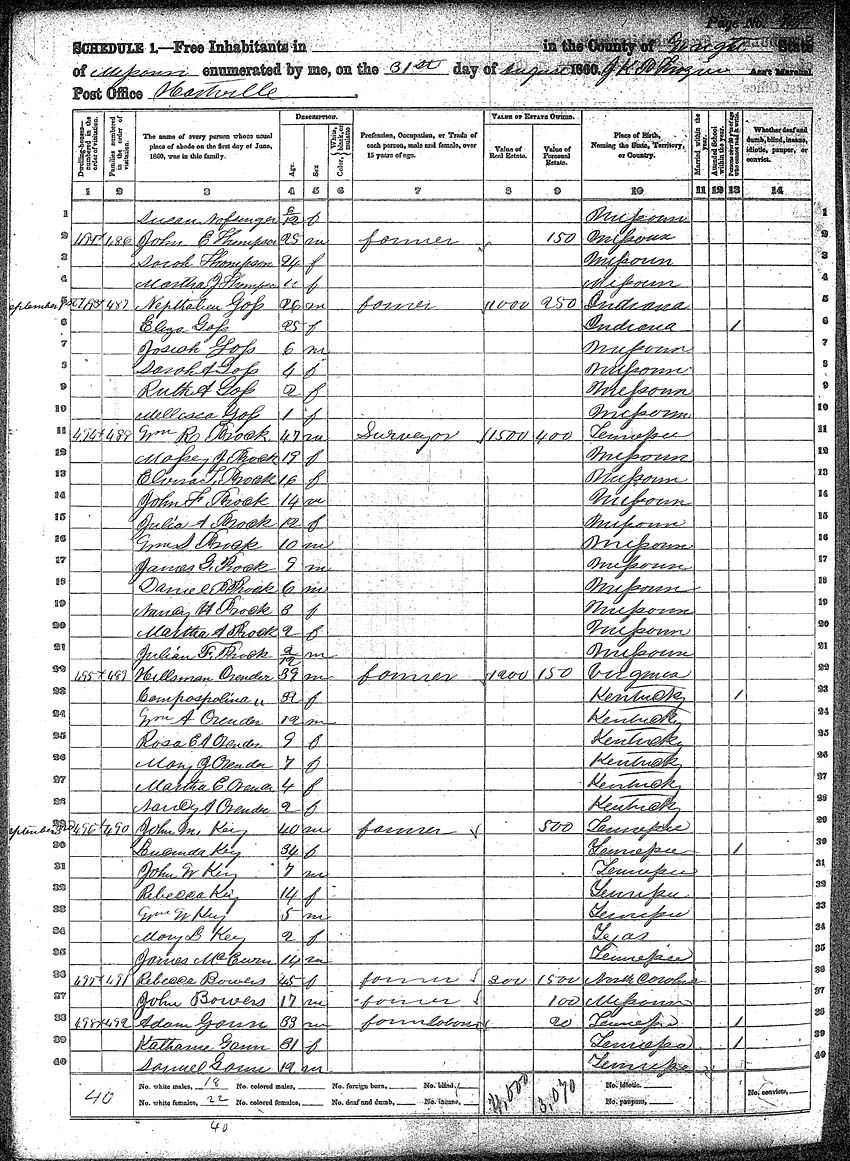 Page No.
SCHEDULE 1.—Free Inhabitants in in the County of Wright State
of Missouri enumerated by me, on the 31st day of August 1860. Ass't Marshal
Post Office Hartville
Dwelling-houses— numbered in the order of visitation.
Families numbered in the order of visitation.
The name of every person whose usual place of abode on the first day of June, 1860, was in this family.
DESCRIPTION.
Age.
Sex
Color, White, black, or mulatto
Profession, Occupation, or Trade of each person, male and female, over 15 years of age.
VALUE OF ESTATE OWNED.
Value of Real Estate.
Value of Personal Estate.
Place of Birth, Naming the State, Territory, or Country.
Married within the year.
Attended School within the year.
Whether deaf and dumb, blind, insane, idiotic, pauper, or convict.
1 2 3 4 5 6 7 8 9 10 11 12 13 14
1 Susan Nofsenger f Missouri 1
2 486 John E Thompson 25 m farmer 150 Missouri 2
3 Sarah Thompson 24 f Missouri 3
4 Martha J Thompson f Missouri 4
September 5 487 Nepthalim Goss 26 m farmer 1000 250 Indiana 5
6 Eliza Goss 25 f Indiana 1 6
7 Josiah Goss 6 m Missouri 7
8 Sarah A Goss 4 f Missouri 8
9 Ruth A Goss 2 f Missouri 9
10 Mellissa Goss 1 f Missouri 10
11 494 488 Wm R Brock 47 m Surveyor 1500 400 Tennessee 11
12 Massey J Brock 19 f Missouri 12
13 Elvira T Brock 16 f Missouri 13
14 John F Brock 14 m Missouri 14
15 Julia A Brock 12 f Missouri 15
16 Wm S Brock 10 m Missouri 16
17 James G Brock 9 m Missouri 17
18 Daniel B Brock 6 m Missouri 18
19 Nancy H Brock 3 f Missouri 19
20 Martha A Brock 2 f Missouri 20
21 Julian F Brock 2/12 m Missouri 21
22 495 489 Hillsman Orender 39 m farmer 1200 150 Virginia 22
23 Campaspolina " 32 f Kentucky 1 23
24 Wm A Orender 12 m Kentucky 24
25 Rosa E A Orender 9 f Kentucky 25
26 Mary J Orender 7 f Kentucky 26
27 Martha E Orender 4 f Kentucky 27
28 Nancy A Orender 2 f Kentucky 28
September 29 496 490 John M Key 40 m farmer 500 Tennessee 29
30 Lucinda Key 34 f Tennessee 1 30
31 John W Key 7 m Tennessee 31
32 Rebecca Key 14 f Tennessee 32
33 Wm W Key 5 m Tennessee 33
34 Mary B Key 2 f Texas 34
35 James McEwin 14 m Tennessee 35
36 497 491 Rebecca Bowers 45 f farmer 300 1500 North Carolina 36
37 John Bowers 17 m farmer 100 Missouri 37
38 498 492 Adam Gann 33 m farm laborer 20 Tennessee 1 38
39 Katharine Gann 31 f Tennessee 1 39
40 Samuel Gann 12 m Tennessee 40
40 No. white males, 18 No. colored males, No. foreign born, No. blind, 4,000 3,070 No. idiotic,
No. white females, 22 No. colored females, No. deaf and dumb, No. insane, No. paupers, No. convicts,
40